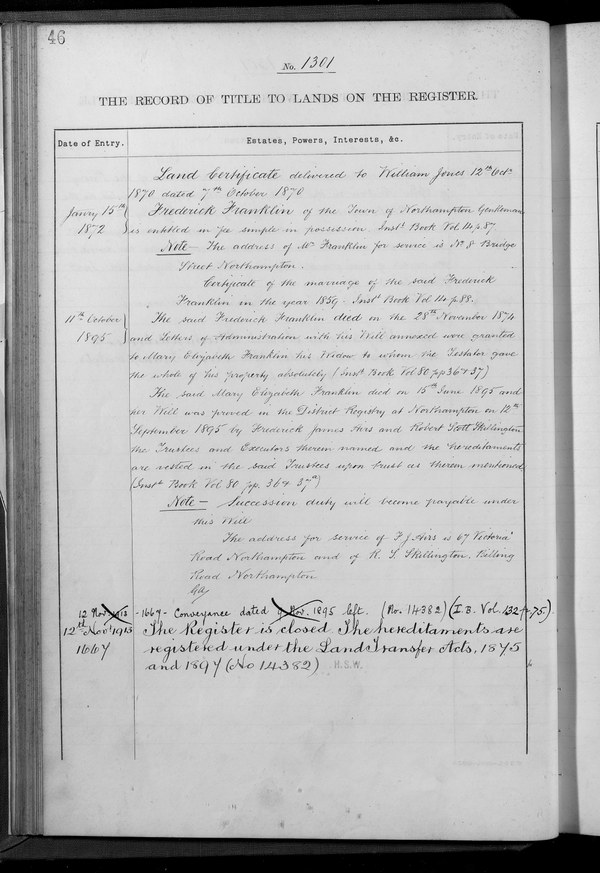 46
No. 1301
THE RECORD OF TITLE TO LANDS ON THE REGISTER.
Date of Entry.
Estates, Powers, Interests, &c.
Land Certificate delivered to William Jones 12th Octr
1870 dated 7th October 1870
Janry 15th
1872
Frederick Franklin of the Town of Northampton Gentleman
is entitled in fee simple in possession. Inst Book Vol 114 p. 87.
Note — The address of Mr Franklin for service is No 8 Bridge
Street Northampton.
Certificate of the marriage of the said Frederick
Franklin in the year 1859. Inst Book Vol 114 p. 88.
11th October
1895
The said Frederick Franklin died on the 28th November 1874
and Letters of Administration with his Will annexed were granted
to Mary Elizabeth Franklin his Widow to whom the Testator gave
the whole of his property absolutely (Inst Book Vol 80 pp 36 & 37)
The said Mary Elizabeth Franklin died on 15th June 1895 and
her Will was proved in the District Registry at Northampton on 12th
September 1895 by Frederick James Airs and Robert Scott Skillington
the Trustees and Executors therein named and the hereditaments
are vested in the said Trustees upon trust as therein mentioned
(Inst Book Vol 80 pp. 36 & 37a)
Note — Succession duty will become payable under
this Will
The address for service of F J Airs is 67 Victoria
Road Northampton and of R. S. Skillington, Billing
Road Northampton
12 Nov. 1913 - 1667 - Conveyance dated 9 Nov. 1895 left. (No. 14382) (I.B. Vol. 132 p 75).
12th Novr 1913
1667
The Register is closed. The hereditaments are
registered under the Land Transfer Acts, 1875
and 1897 (No 14382) H.S.W.